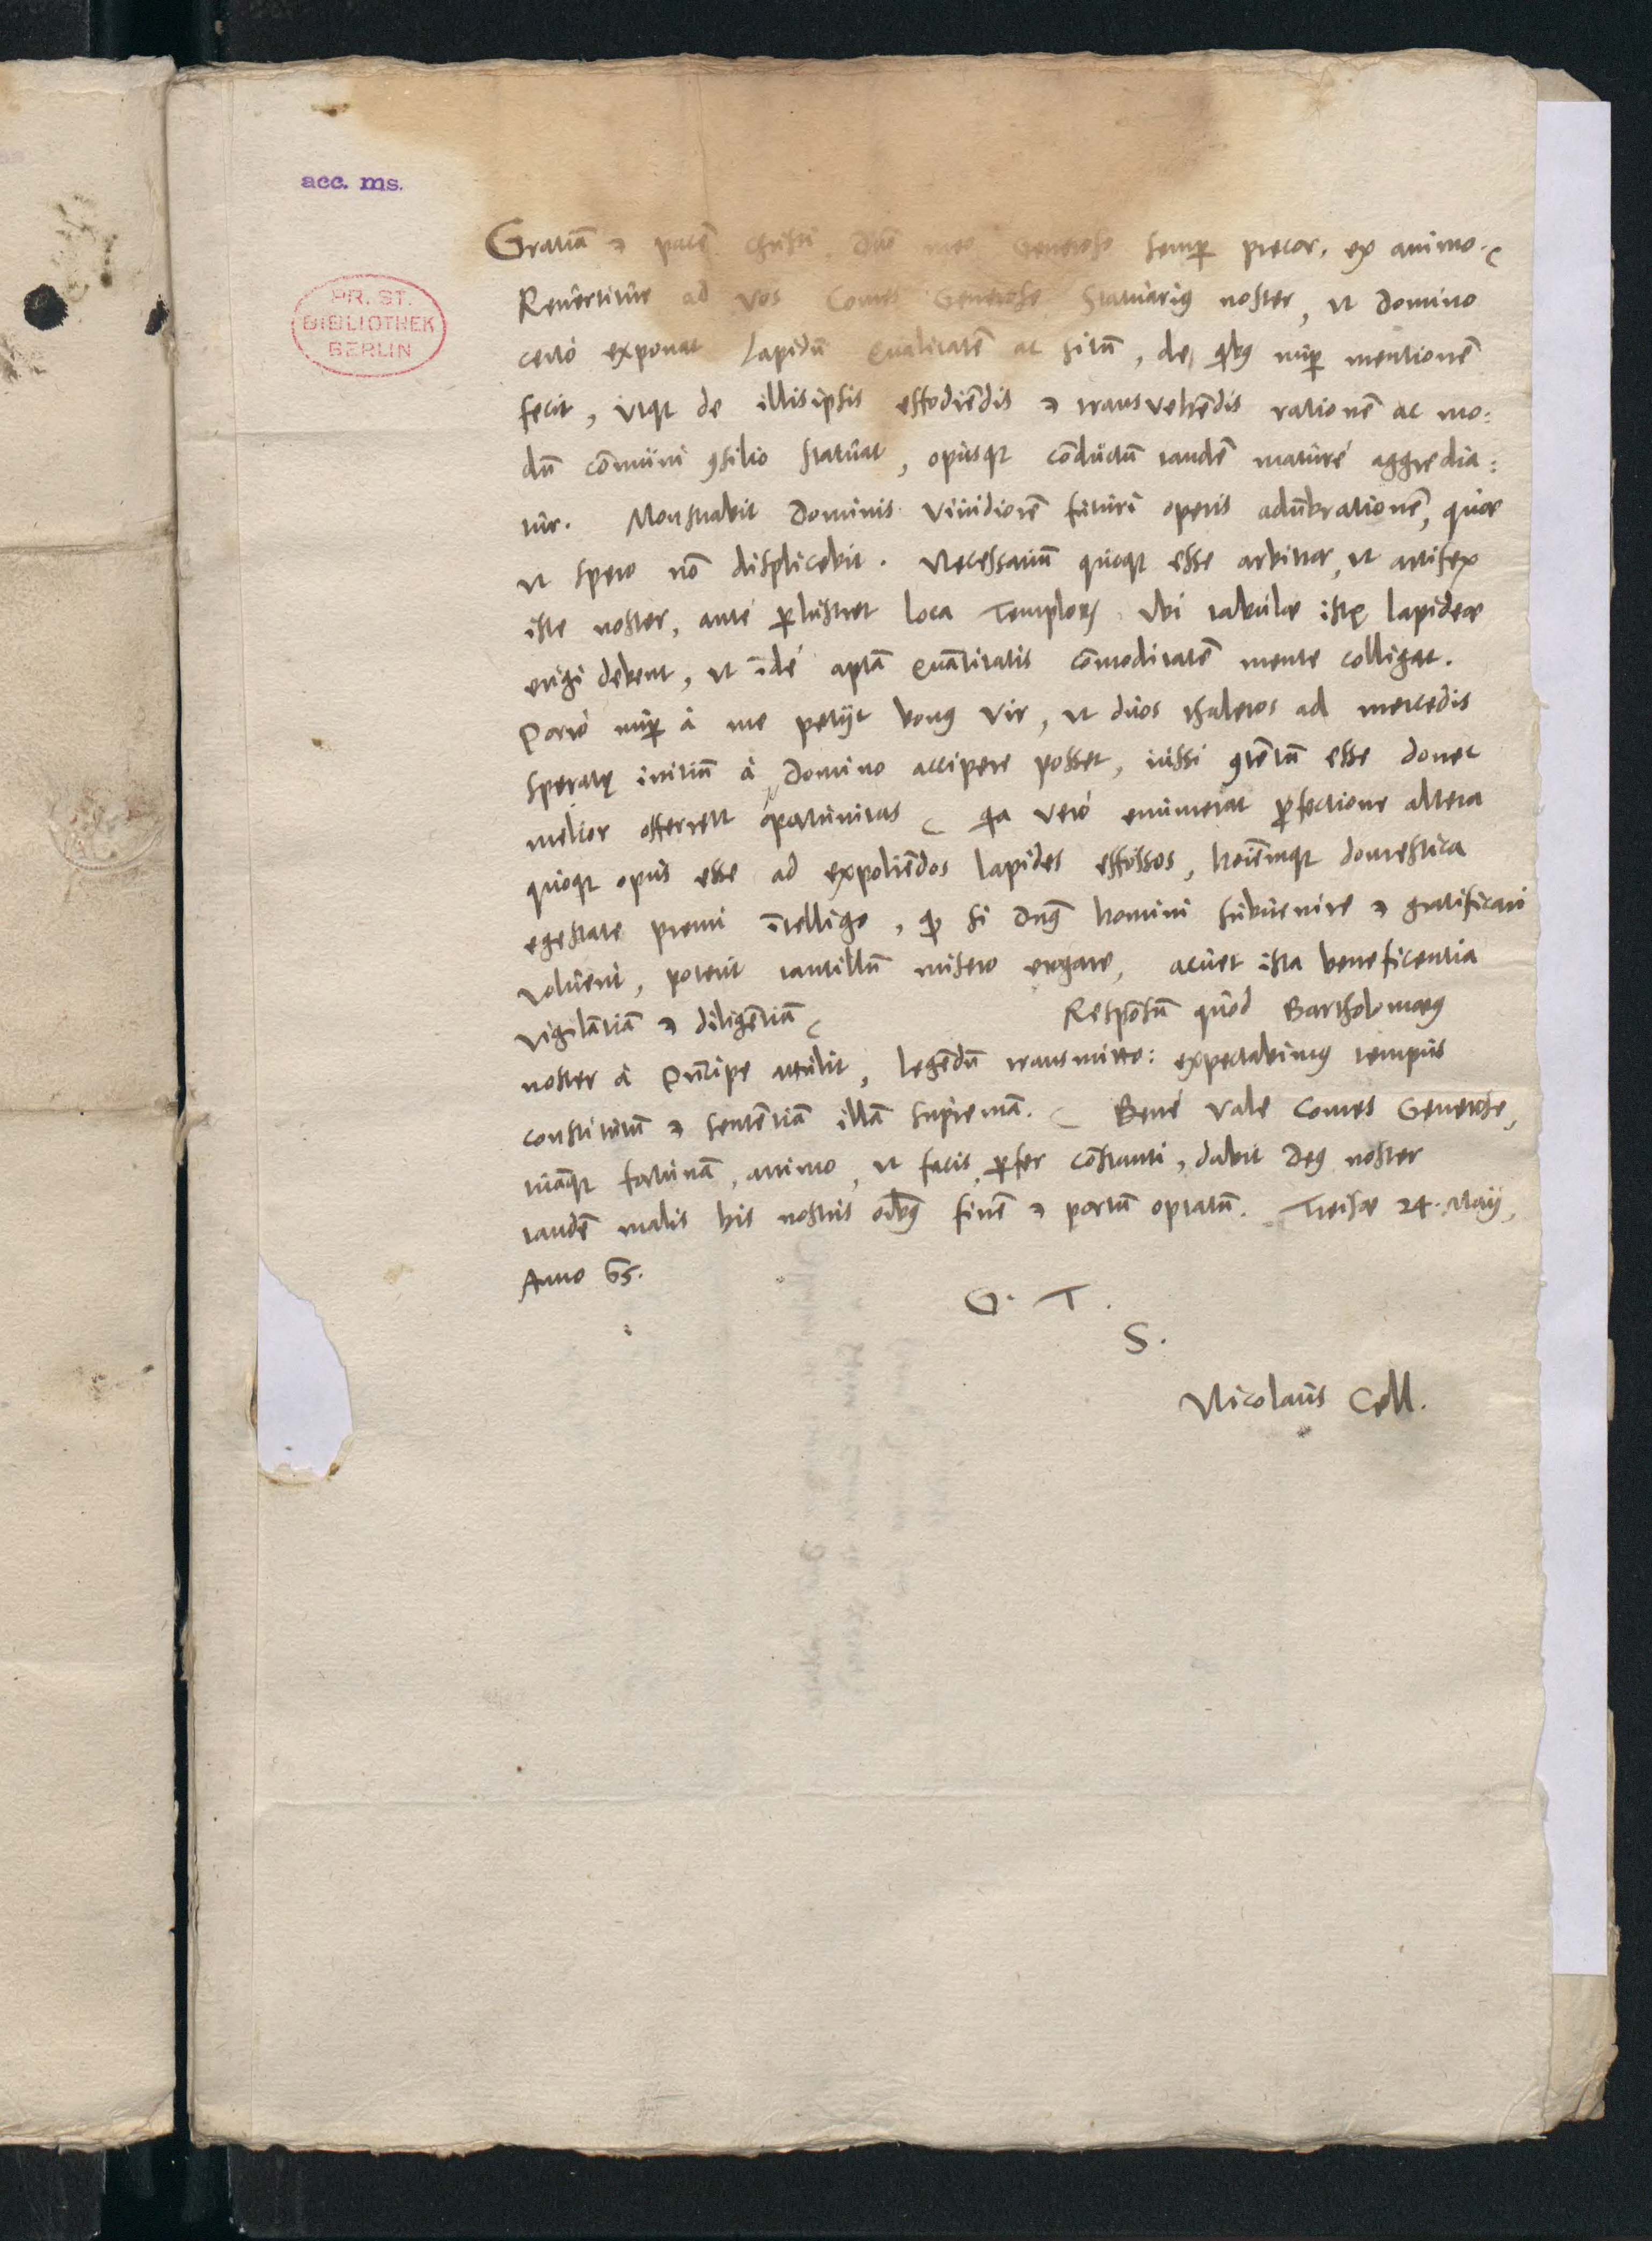 acc. ms.
PR. ST.
BIBLIOTHEK
BERLIN
Gratiā & pacē Christi, Dn̄o meo Generoso semp precor, ex animo.
Revertitur ad vos Comes Generose Statuariꝰ noster, ut Domino
certò exponat Lapidū Qualitatē ac sitū, de qbꝰ nup mentionē
fecit, utqꝫ de illis ipsis effodiēdis & transvehēdis rationē ac mo:
dū cōmuni ꝯsilio statuat, opusqꝫ cōductū tandē maturé aggredia:
tur. Monstrabit Dominis vividiorē futuri operis adūbrationē, quae
ut spero nō displicebit. Necessariū quoqꝫ esse arbitror, ut artifex
iste noster, anté ꝑlustret loca Templorꝝ ubi tabulae istę lapideae
erigi debent, ut īdé aptā Quātitatis cōmoditatē mente colligat.
Porró nup à me petijt bonꝰ vir, ut duos thaleros ad mercedis
speratę initiū à Domino accipere posset, iussi ꝯtētū esse donec
melior offerret oportunitas, qa veró enumerat ꝓfectione altera
quoqꝫ opus esse ad expoliēdos lapides effossos, hoīēmqꝫ domestica
egestate premi ītelligo, qd si Dnꝰ homini subvenire & gratificari
voluerit, poterit tantillū misero erogare, acuet ista beneficentia
vigilātiā & diligētiā
Respōsū quod Bartholomaeꝰ
noster à Prīcipe attulit, legēdū transmitto: expectabimꝰ tempus
constitutū & sentētiā illā supremā. Bené vale Comes Generose,
tuāqꝫ fortunā, animo, ut facis, ꝑfer cōstanti, dabit Deꝰ noster
tandē malis his nostris oībꝰ finē & portū optatū. Treisae 24. Maij,
Anno 65.
G. T.
S.
Nicolaus Cell.